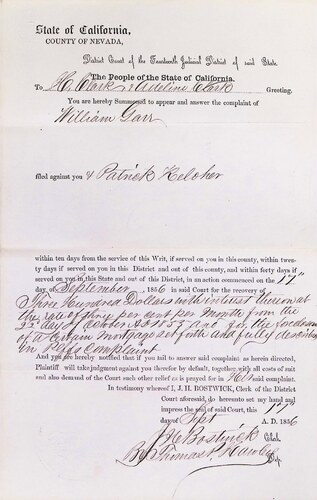 State of California,
COUNTY OF NEVADA,
District Court of the Fourteenth Judicial District of said State
The People of the State of California.
To H. Clark & Adeline Clark Greeting.
You are hereby Summoned to appear and answer the complaint of
William Garr
filed against you & Patrick Keloher
within ten days from the service of this Writ, if served on you in this county, within twen-
ty days if served on you in this District and out of this county, and within forty days if
served on you in this State and out of this District, in an action commenced on the 17th
day of September 1856 in said Court for the recovery of
Three Hundred Dollars with interest thereon at
the rate of three per cent per month from the
22d day of AD 1855 and for the foreclosure
of a certain mortgage set forth and fully described
in Plffs Complaint.
And you are hereby notified that if you fail to answer said complaint as herein directed,
Plaintiff will take judgment against you therefor by default, together with all costs of suit
and also demand of the Court such other relief as is prayed for in said complaint.
In testimony whereof I, J. H. BOSTWICK, Clerk of the District
Court aforesaid, do hereunto set my hand and
impress the seal of said Court, this 17th
day of Sept A. D. 1856
J H Bostwick Clerk
By Thomas P. Hawley Dep.